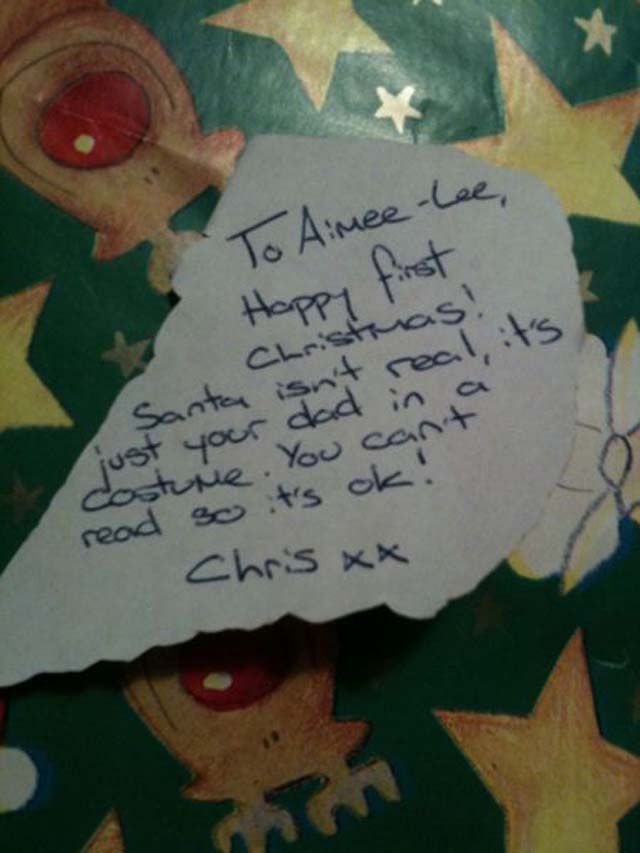 To Aimee-Lee,
Happy first
Christmas!
Santa isn't real, it's
just your dad in a
costume. You can't
read so it's ok!
Chris xx